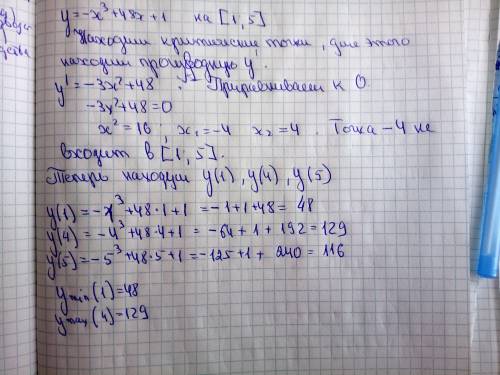 y=-x³+48x+1 на [1,5]
Находим критические точки, для этого
находим производную y.
y'=-3x²+48. Приравниваем к 0
-3x²+48=0
x²=16, x₁=-4 x₂=4. Точка -4 не
входит в [1,5].
Теперь находим y(1), y(4), y(5)
y(1)=-1³+48·1+1=-1+1+48=48
y(4)=-4³+48·4+1=-64+1+192=129
y(5)=-5³+48·5+1=-125+1+240=116
y min(1)=48
y max(4)=129